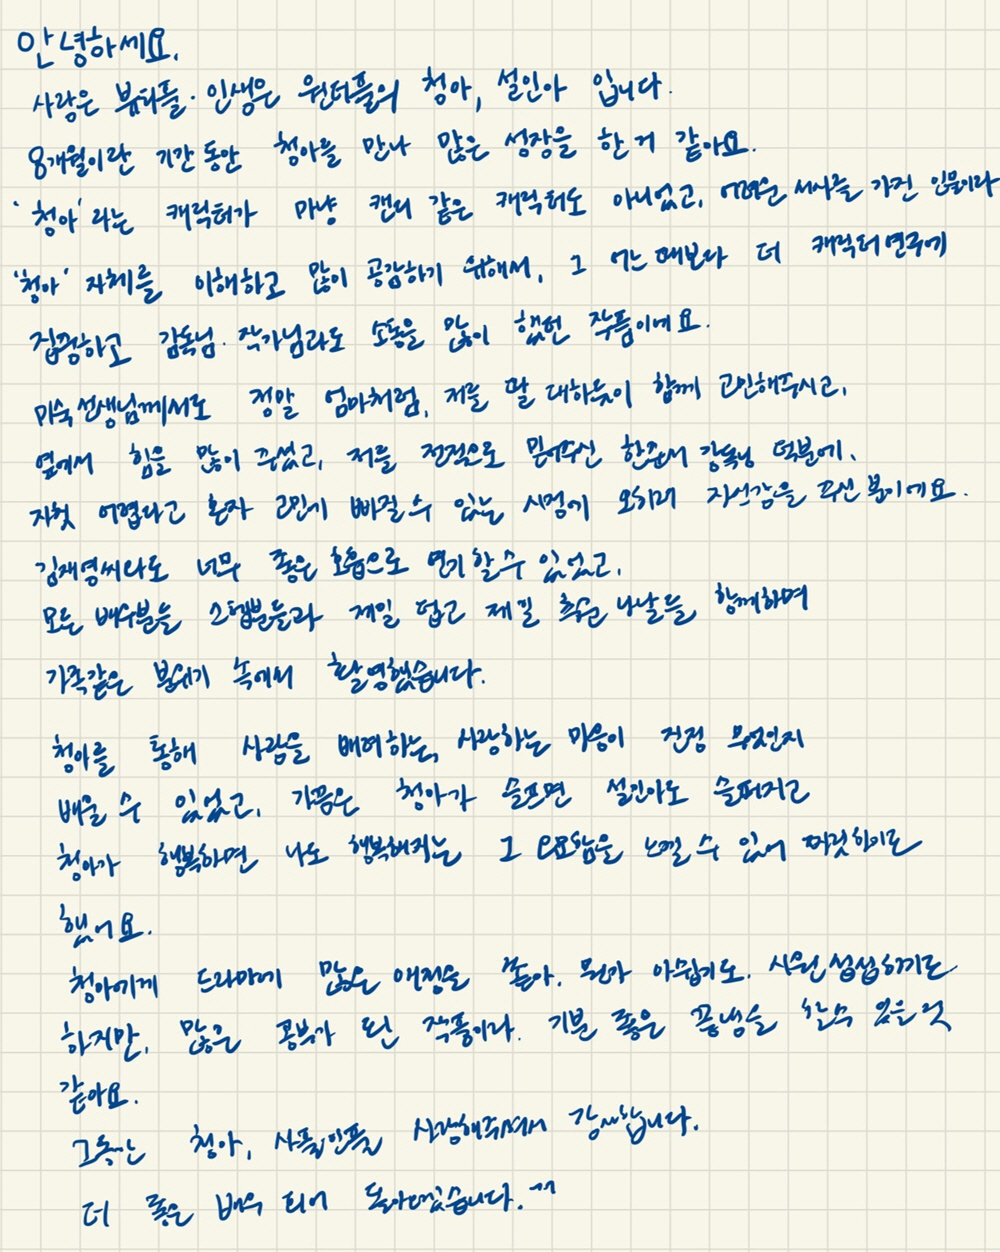 안녕하세요.
사랑은 뷰티풀. 인생은 원더풀의 청아, 설인아 입니다.
8개월이란 기간동안 청아를 만나 많은 성장을 한 거 같아요.
'청아'라는 캐릭터가 마냥 캔디 같은 캐릭터도 아니었고, 어려운 서사를 가진 인물이라
'청아' 자체를 이해하고 많이 공감하기 위해서, 그 어느때보다 더 캐릭터연구에
집중하고 감독님. 작가님과도 소통을 많이 했던 작품이에요.
미숙선생님께서도 정말 엄마처럼, 저를 딸 대하듯이 함께 고민해주시고,
옆에서 힘을 많이 주셨고, 저를 전적으로 믿어주신 한준서 감독님 덕분에,
자칫 어렵다고 혼자 고민에 빠질수 있는 시점에 오히려 자신감을 주신 분이에요.
김재영씨와도 너무 좋은 호흡으로 연기할수 있었고,
모든 배우분들 스탭분들과 제일 덥고 제일 추운 나날들 함께하며
가족같은 분위기 속에서 촬영했습니다.
청아를 통해 사람을 배려하는, 사랑하는 마음이 진정 무엇인지
배울 수 있었고, 가끔은 청아가 슬프면 설인아도 슬퍼지고
청아가 행복하면 나도 행복해지는 그 오묘함을 느낄 수 있어 짜릿하기도
했어요.
청아에게 드라마에 많은 애정을 쏟아. 뭔가 아쉽기도. 시원섭섭하기도
하지만, 많은 공부가 된 작품이라. 기분 좋은 끝맺음 할수 있을 것
같아요.
그동안 청아, 사풀인풀 사랑해주셔서 감사합니다.
더 좋은 배우 되어 돌아오겠습니다. ^^